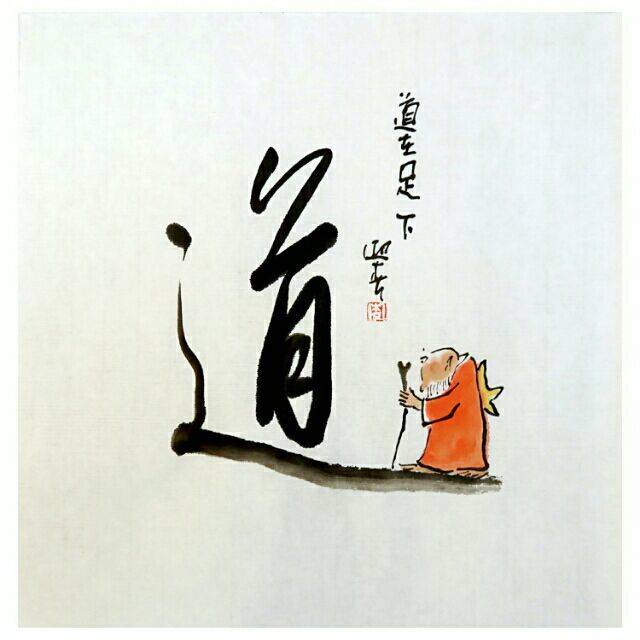 道
道在足下